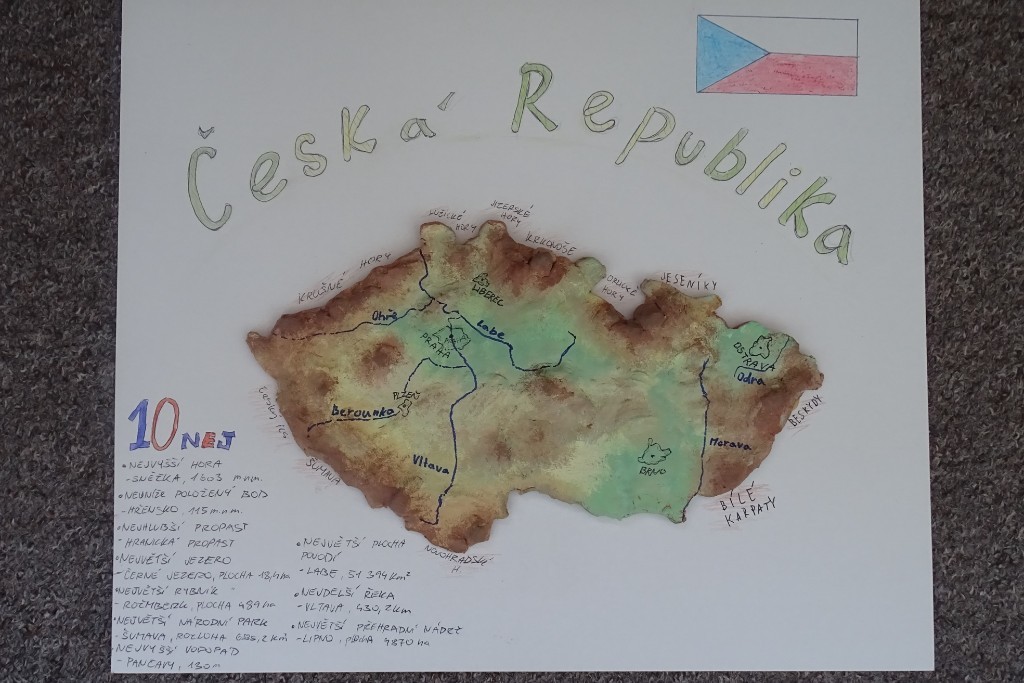 Česká Republika
LUŽICKÉ HORY
JIZERSKÉ HORY
KRKONOŠE
ORLICKÉ HORY
JESENÍKY
KRUŠNÉ HORY
LIBEREC
Ohře
Labe
PRAHA
OSTRAVA
Odra
PLZEŇ
Berounka
BESKYDY
Český les
Morava
BRNO
Vltava
ŠUMAVA
BÍLÉ KARPATY
NOVOHRADSKÉ H.
10 NEJ
• NEJVYŠŠÍ HORA
- SNĚŽKA, 1603 m n.m.
• NEJNÍŽE POLOŽENÝ BOD
- HŘENSKO, 115 m.n.m.
• NEJHLUBŠÍ PROPAST
- HRANICKÁ PROPAST
• NEJVĚTŠÍ JEZERO
- ČERNÉ JEZERO, PLOCHA 18,4 ha
• NEJVĚTŠÍ RYBNÍK
- ROŽMBERK, PLOCHA 489 ha
• NEJVĚTŠÍ NÁRODNÍ PARK
- ŠUMAVA, ROZLOHA km
• NEJVYŠŠÍ VODOPÁD
- PANČAVY, 130m
• NEJVĚTŠÍ PLOCHA
POVODÍ
- LABE, 51 394 km²
• NEJDELŠÍ ŘEKA
- VLTAVA, 430,2 km
• NEJVĚTŠÍ PŘEHRADNÍ NÁDRŽ
- LIPNO, PLOCHA 4870 ha